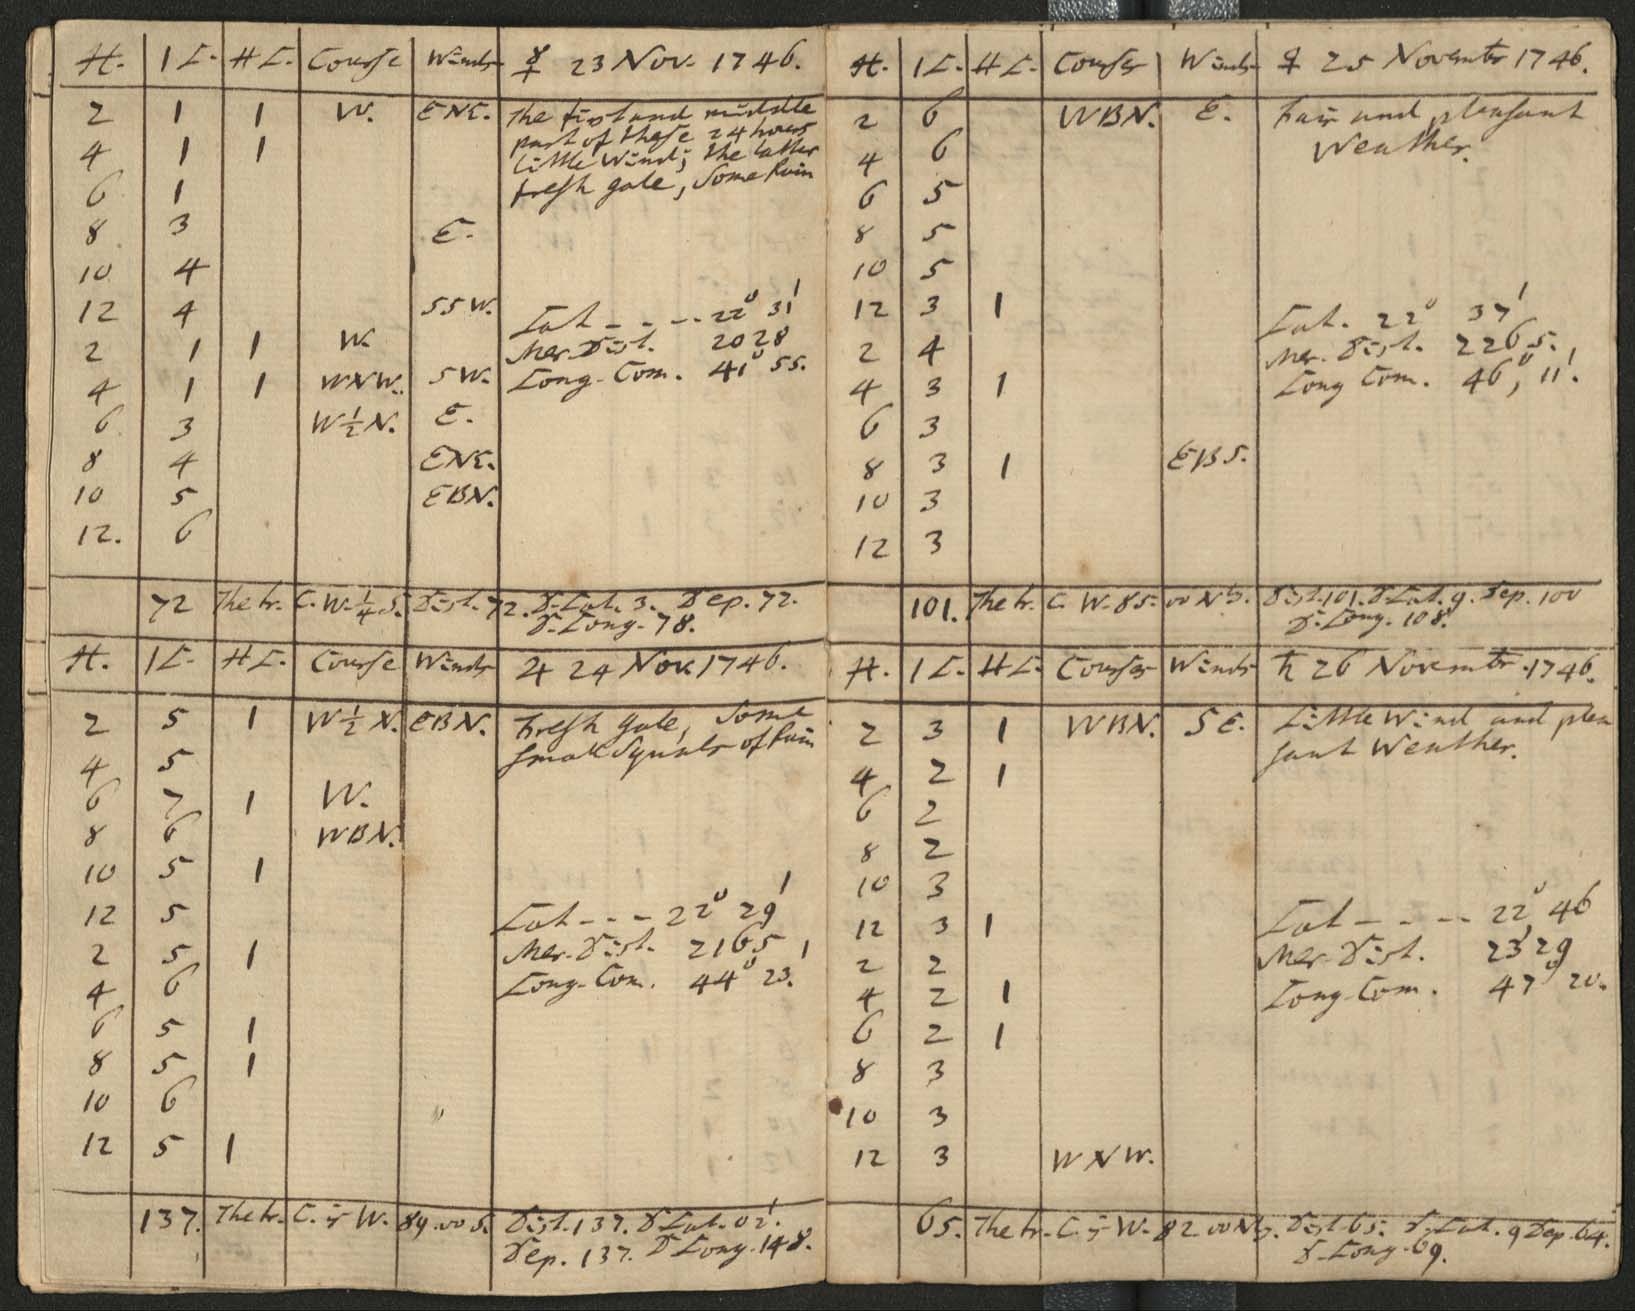 H. 1 L. H L. Course Winds ☿ 23 Nov. 1746.
2 1 1 W. ENE. The first and middle
part of these 24 hours
4 1 1 Little Wind; the latter
6 1 fresh gale, Some Rain
8 3 E.
10 4
12 4 SSW. Lat - - - - 22° 31'
2 1 1 W. Mer. Dist. 2028
4 1 1 WNW. SW. Long. Com. 41° 55.
6 3 W ½ N. E.
8 4 ENE.
10 5 EBN.
12. 6
72 The tr. C. W. ¼ S. Dist. 72. D-Lat. 3. Dep. 72.
D-Long. 78.
H. 1 L. H L. Course Winds ♃ 24 Nov. 1746.
2 5 1 W ½ N. EBN. Fresh gale, Some
4 5 small Squals of Rain
6 7 1 W.
8 6 WBN.
10 5 1
12 5 Lat - - - 22° 29'
2 5 1 Mer. Dist. 2165
4 6 Long. Com. 44° 23.'
6 5 1
8 5 1
10 6 "
12 5 1
137. The tr. C. is W. 89.00 S. Dist. 137. D-Lat. 02'.
Dep. 137. D Long. 148.
H. 1 L. H L. Courses Winds ♀ 25 Novembr 1746.
2 6 WBN. E. Fair and pleasant
4 6 Weather.
6 5
8 5
10 5
12 3 1 Lat. 22° 37'
2 4 Mer. Dist. 2265.
4 3 1 Long Com. 46°, 11'.
6 3
8 3 1 EBS.
10 3
12 3
101. The tr. C. W. 85. 00 Nly. Dist. 101. D-Lat. 9. Dep. 100
D-Long. 108.
H. 1 L. H L. Courses Winds ♄ 26 Novembr. 1746.
2 3 1 WBN. SE. Little Wind and plea
4 2 1 sant Weather.
6 2
8 2
10 3
12 3 1 Lat - - - - 22°, 46
2 2 Mer. Dist. 2329
4 2 1 Long. Com. 47° 20.
6 2 1
8 3
10 3
12 3 WNW.
65. The tr. C. is W. 82 00 Nly. Dist. 65. D-Lat. 9 Dep. 64.
D-Long. 69.